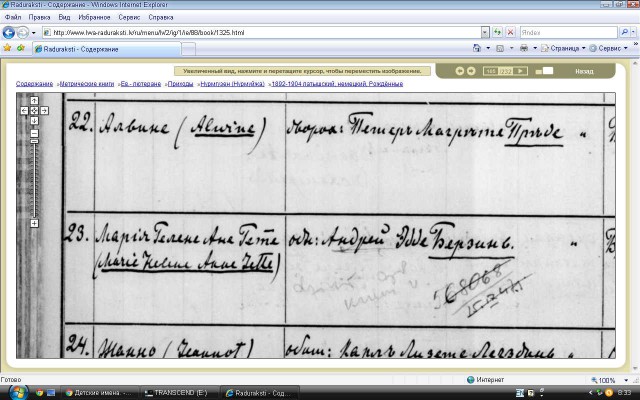 Raduraksti - Содержание - Windows Internet Explorer
Файл Правка Вид Избранное Сервис Справка
http://www.lvva-raduraksti.lv/ru/menu/lv/2/ig/1/ie/88/book/1325.html
Яndex
Raduraksti - Содержание
Страница Сервис
Увеличенный вид, нажмите и перетащите курсор, чтобы переместить изображение.
/232
Назад
Содержание »Метрические книги »Ев.- лютеране »Приходы »Нурмуген (Нурмуйжа) »1892-1904 латышский, немецкий, Рождённые
22. Алвине (Alwine)
Петеръ Маргрете
23. Марія Гелене Ане
Андрей Эдде Берзинь. "
(Marie Helene Anne Jette)
68068
24. Жанно (Jeannot)
Карлъ Лизете
Готово
Интернет
100%
Детские имена. -...
TRANSCEND (E:)
Raduraksti - Сод...
EN
8:33